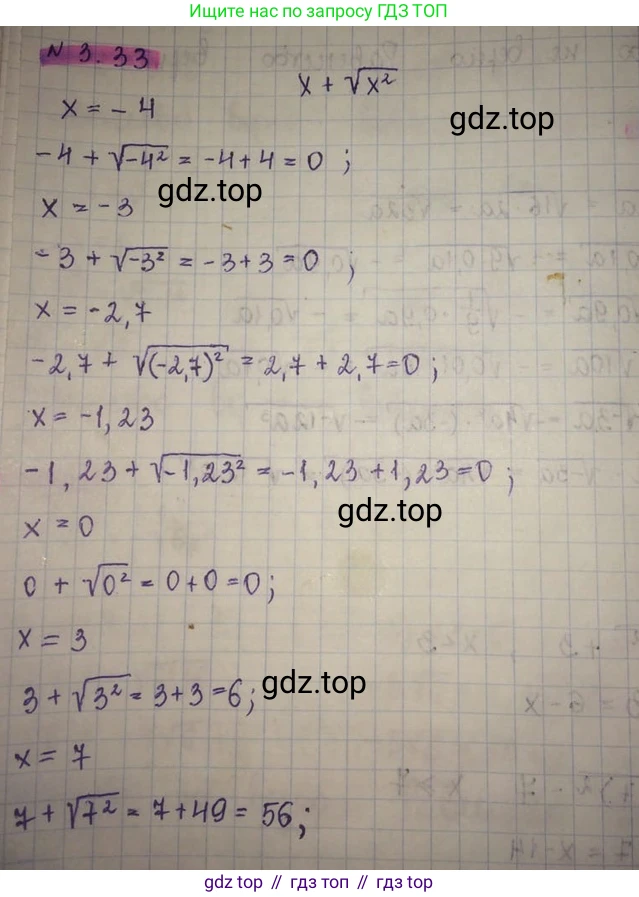 Ищите ответ по запросу ГДЗ ТОП
N 3.33
x + √x²
x = - 4
-4 + √-4² = -4+4 = 0 ;
gdz.top
gdz.top
x = -3
-3 + √-3² = -3+3=0 ;
x = -2,7
-2,7 + √(-2,7)² = 2,7 + 2,7=0 ;
x = -1,23
-1,23 + √-1,23² = -1,23 +1,23=0 ;
gdz.top
x = 0
0 + √0² = 0+0=0;
x = 3
3 + √3² = 3+3=6;
gdz.top
x = 7
7 + √7² = 7+49 = 56;
gdz.top // гдз топ // гдз.топ